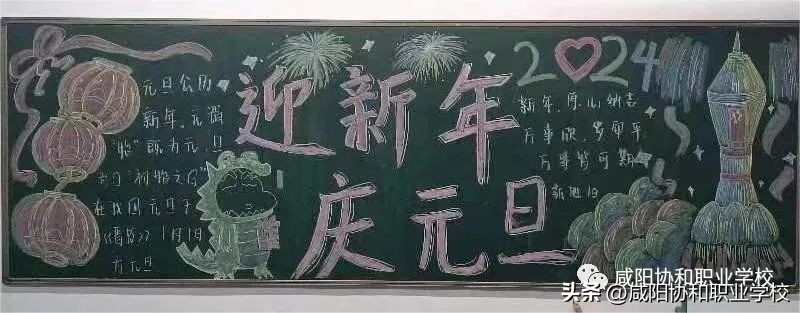 元旦公历
新年。元谓
"始"既为元,日
为日"初始之日"
在我国元旦于
《晋书》1月1日
为元旦
迎新年
庆元旦
2024
新年,
万事顺,岁
万事皆可期
咸阳协和职业学校
头条@咸阳协和职业学校